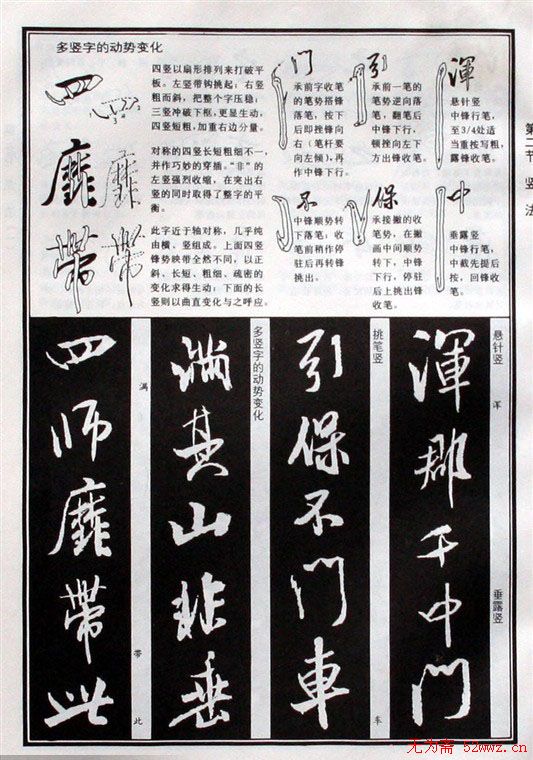 多竖字的动势变化
四竖以扇形排列来打破平
板。左竖带钩挑起；右竖
粗而斜，把整个字压稳；
三竖冲破下框，更显生动，
四竖短粗，加重右边分量。
对称的四竖长短粗细不一，
并作巧妙的穿插。“非”的
左竖强烈收缩，在突出右
竖的同时取得了整字的平
衡。
此字近于轴对称，几乎纯
由横、竖组成。上面四竖
锋势映带全然不同，以正
斜、长短、粗细、疏密的
变化求得生动；下面的长
竖则以曲直变化与之呼应。
四
靡
帶
門
承前字收笔
的笔势搭锋
落笔，按下
后即挫锋向
右（笔杆要
向左倾），再
作中锋下行。
引
承前一笔的
笔势逆向落
笔，翻笔后
中锋下行，
顿挫向左下
方出锋收笔。
渾
悬针竖
中锋行笔，
至3/4处适
当重按写粗，
露锋收笔。
不
中锋顺势转
下落笔；收
笔前稍作停
驻后再转锋
挑出。
保
承接撇的收
笔势，在撇
画中间顺势
转下，中锋
下行，停驻
后上挑出锋
收笔。
中
垂露竖
中锋行笔，
中截先提后
按，回锋收
笔。
第二节 竖法
悬针竖
浑
垂露竖
渾郡千中門
挑笔竖
车
引保不門車
多竖字的动势变化
滿其山非垂
满
带
此
四师靡帶此
尤为斋 52wwz.cn